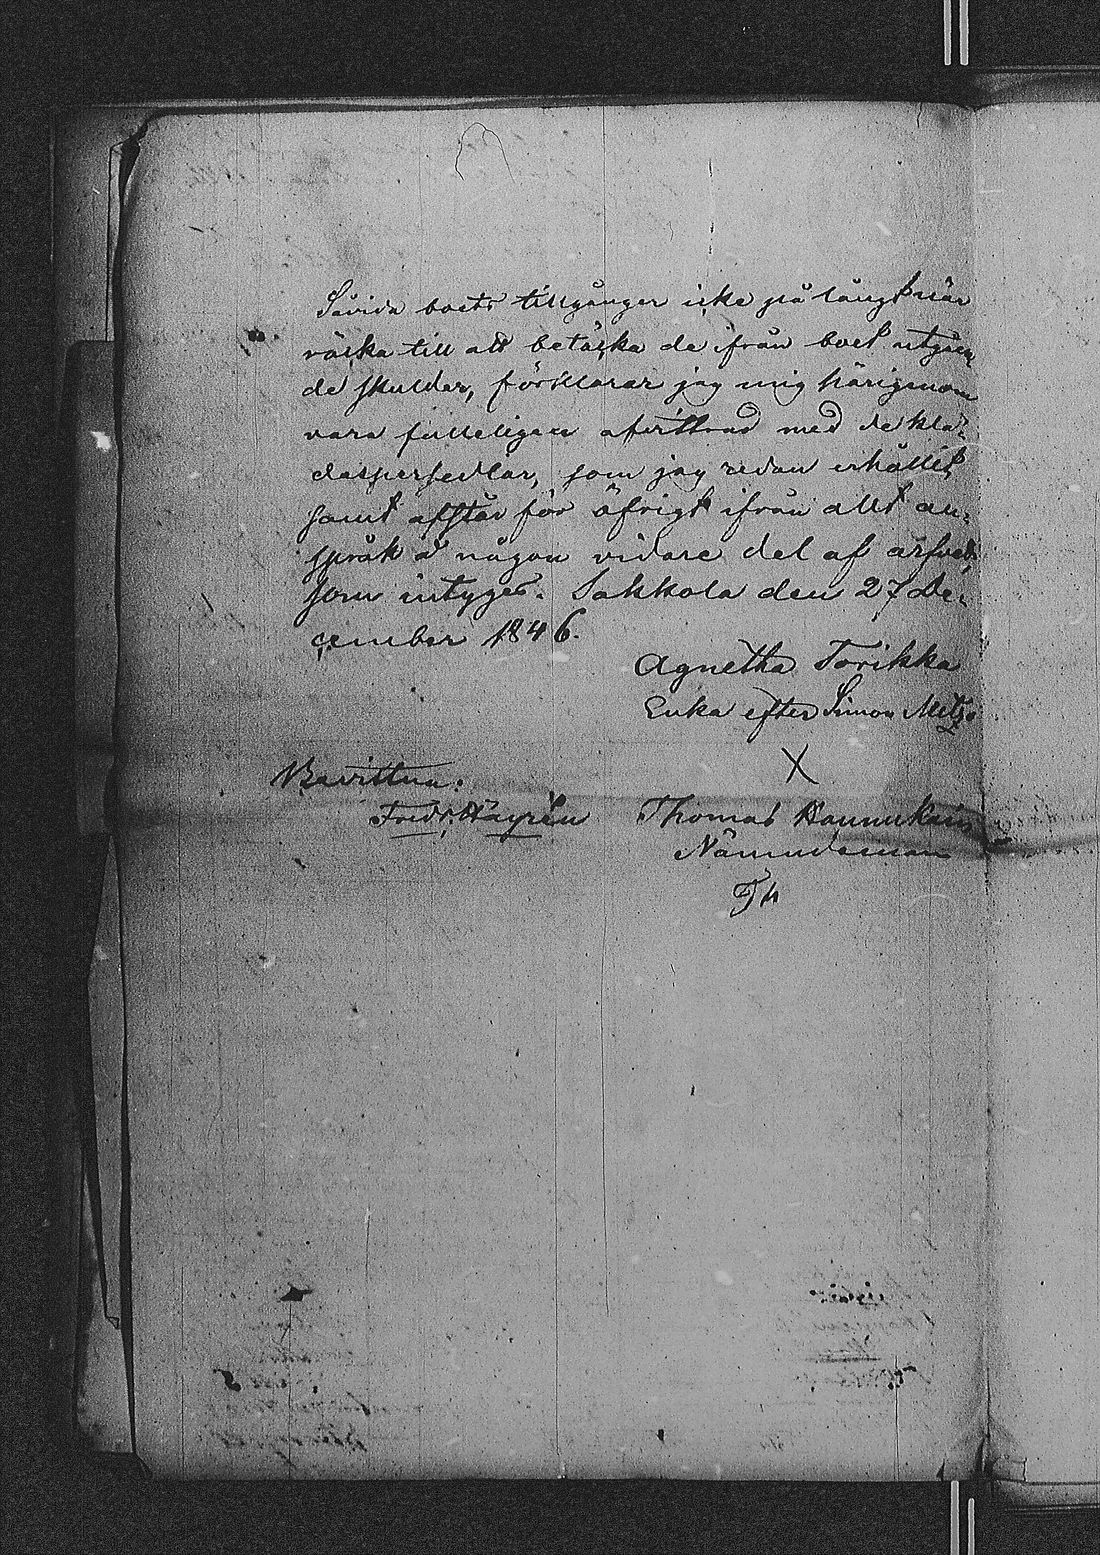 Såvida boets tillgånger icke på långt när
räcka till att betäcka de ifrån boet utgåen
de skulder, förklarar jag mig härigenom
vara fulleligen afvittrad med de klä-
despersedlar, som jag redan erhållit,
samt afstår för öfrigt ifrån allt an-
språk å någon vidare del af arfvet,
som intygas. Sakkola den 27 De-
cember 1846.
Agnetha Torikka
Enka efter Simon
X
Bevittna:
Fredr. Häyrén Thomas
Nämndeman
TH